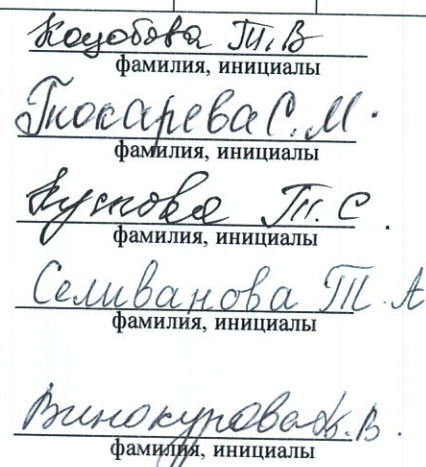 Коробова Т.В
фамилия, инициалы
Токарева С.М.
фамилия, инициалы
Т.С.
фамилия, инициалы
Селиванова Т.А
фамилия, инициалы
Винокурова В.
фамилия, инициалы